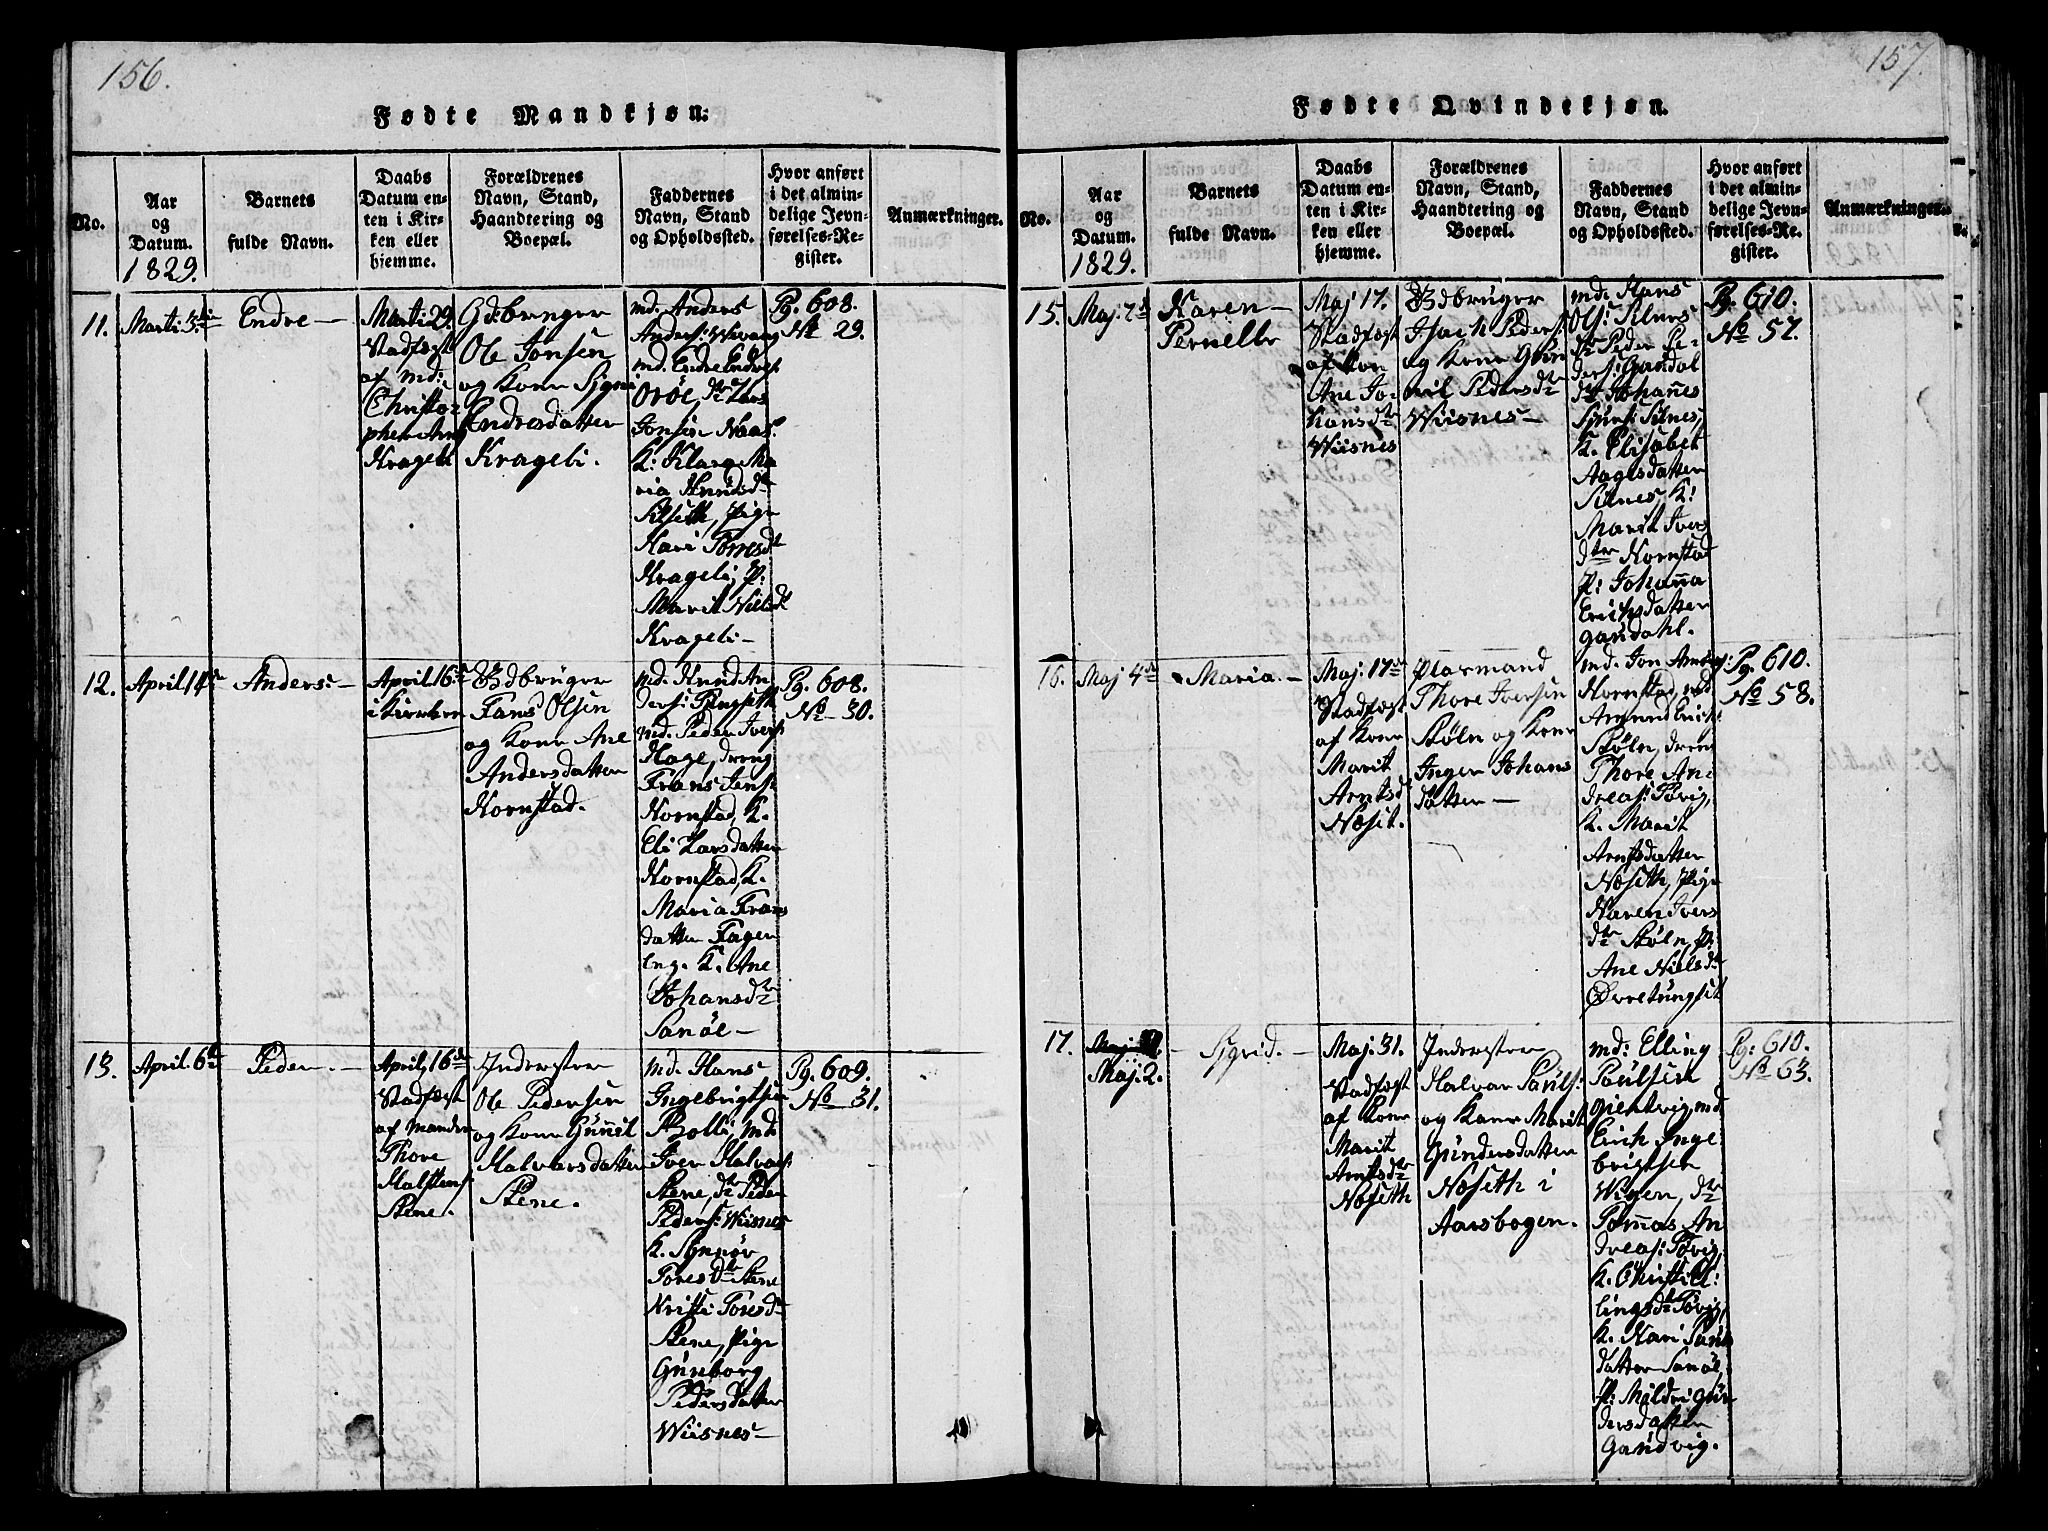 156.
Fødte Mandkjøn:
No.
Aar
og
Datum.
1829.
Barnets
fulde Navn.
Daabs
Datum en-
ten i Kir-
ken eller
hjemme.
Forældrenes
Navn, Stand,
Haandtering og
Boepæl.
Faddernes
Navn, Stand
og Opholdssted.
Hvor anført
i det almin-
delige Jevn-
førelses-Re-
gister.
Anmærkninger.
11.
Marti 3die
Endre —
Marti 29.
Stadfæst
af md:
Christo-
pher
Krageli
Gdbruger
Ole Jonsen
og Kone Signi
Endresdatter
Krageli.
md. Anders
Anders:
md. Endre Endres:
Oröe, dr. Lars
Jonsen Haas.
K: Klara Ma
ria Knudsdr
Silseth, Pige
Kari Toresdr
Krageli, P:
Marit Nielsdr
Krageli —
Pg. 608.
No 29.
12.
April 14de
Anders: —
April 16de
i Kirken
Gdbruger
Frans Olsen
og Kone Ane
Andersdatter
Hornstad.
md. Knud An
ders: Tungseth
md. Peder Ivers:
Hage, dreng
Frans Jens:
Hornstad, K.
Eli Larsdatter
Hornstad, K.
Maria Frans
datter Fager
eng. K. Ane
Johansdtr
Sanöe —
Pg. 608.
No 30.
13.
April 6te
Peder. —
April 16de
Stadfæst
af Manden
Thore
Halstens:
Stene.
Inderster
Ole Pedersen
og Kone Gunnil
Halvarsdatter
Stene.
md. Hans
Ingebrigtsen
Bolli, md.
Iver Halvars:
Stene, dr. Peder
Peders: Wiisnes
K. Synnöv
Toresdtr Stene
Kristi Toresdr
Stene, Pige
Guneborg
Pedersdatter
Wiisnes —
Pg. 609.
No 31.
157.
Fødte Qvindekjøn.
No.
Aar
og
Datum.
1829.
Barnets
fulde Navn.
Daabs
Datum en-
ten i Kir-
ken eller
hjemme.
Forældrenes
Navn, Stand,
Haandtering og
Boepæl.
Faddernes
Navn, Stand
og Opholdssted.
Hvor anført
i det almin-
delige Jevn-
førelses-Re-
gister.
Anmærkninger.
15.
Maj 7de
Karen —
Pernelle
Maj 17.
Stadfæst
af Kon
Ane Jo-
hansdtr
Wiisnes
Gdbruger
Isach Peders:
og Kone Gun
nil Pedersdtr
Wiisnes —
md. Hans
Ols: Silnes
dr. Peder Pe-
ders: Gandal
dr. Johannes
Silnes,
K. Elisabet
Aagesdatter
Silnes, K:
Marit Ivers
dtr Hornstad
P: Johanna
Erichsdatter
Gandahl.
Pg. 610.
No 57.
16.
Maj 4de
Maria. —
Maj 17de
Stadfæst
af Kone
Marit
Arntsd
Nöseit.
Plasmand
Thore Iversen
Stöln og Kone
Inger Johans
datter —
md. Jon
Hornstad, md
Erich:
Stöln, dreng
Thore An
dreas: Tövig,
K. Marit
Arntsdatter
Nöseth, Pige
Karen Ivers
dtr Stöln, P.
Ane Nielsdtr
Pg. 610.
No 58.
17.
Maj. 2.
Sigrid. —
Maj. 31.
Stadfæst
af Kone
Marit
Arntsdtr
Nöseth
Inderster
Halvar Pauls:
og Kone Marit
Gundersdatter
Nöseth i
Aarsbogen.
md: Elling
Paulsen
Gientvig, md
Erich Inge
brigtsen
Wigen, dr
Tommas An
dreas: Tövig,
K. El:
lingsdtr Tövig,
K. Kari
datter Sanöe
P: Mildri Gun
dersdatter
Gandvig.
Pg. 610.
No 63.